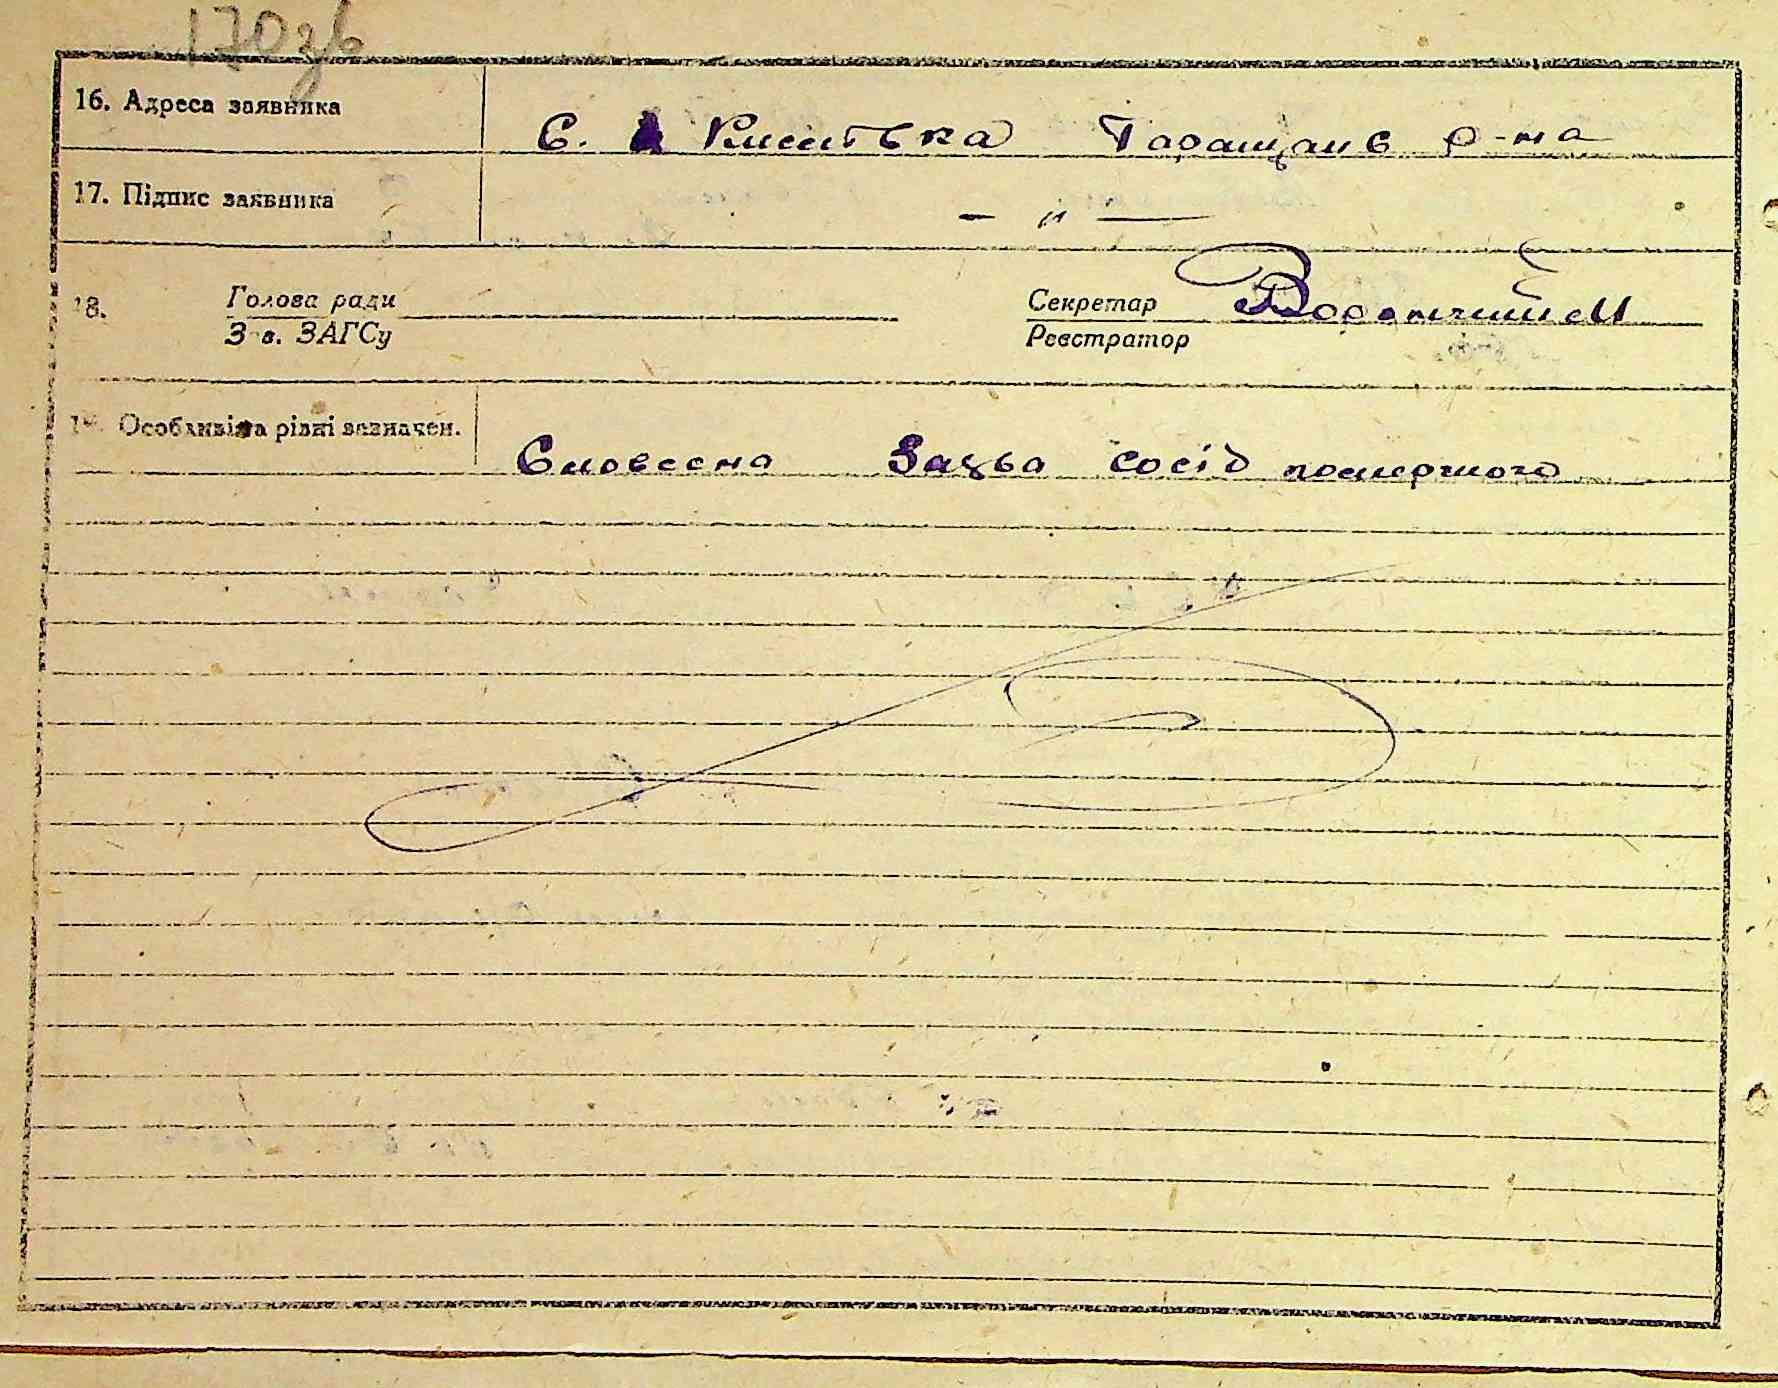 170зв
16. Адреса заявника
С. Кислівка Таращанс р-на
17. Підпис заявника
— " —
18. Голова ради
Зав. ЗАГСу
Секретар
Реєстратор
19. Особливі та різні зазначен.
Словесна Заява сосід помершого